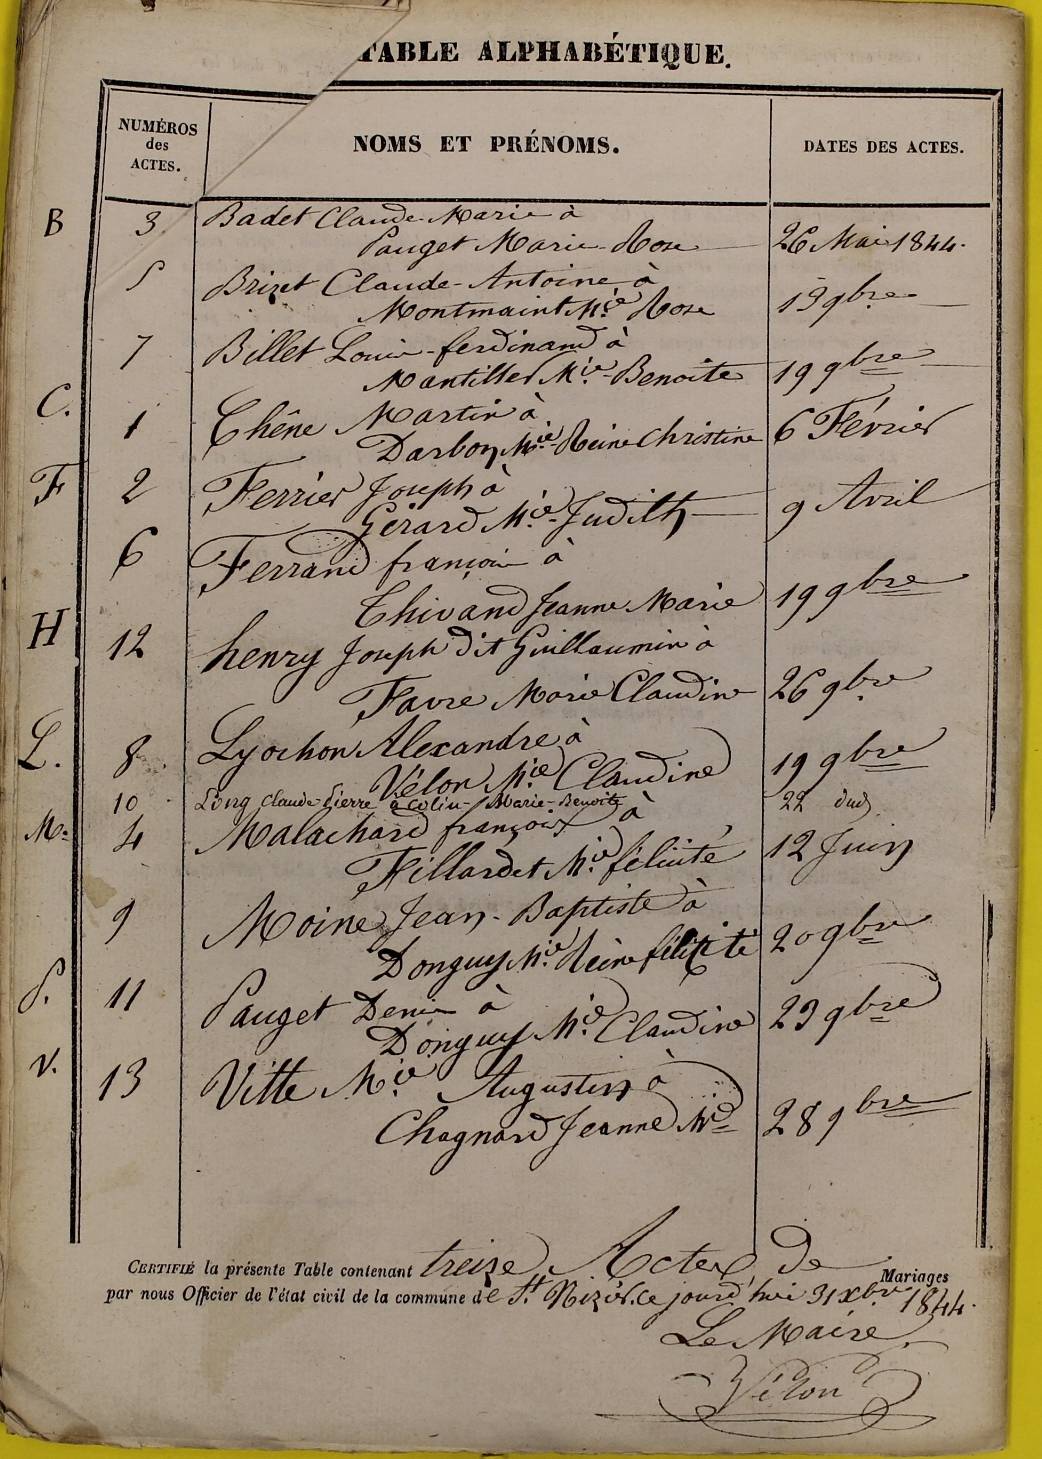 TABLE ALPHABÉTIQUE.
NUMÉROS des ACTES.
NOMS ET PRÉNOMS.
DATES DES ACTES.
B 3 Badet Claude-Marie à
Pauget Marie-Rose 26 Mai 1844.
5 Brizet Claude-Antoine à
Montmaint Mie Rose 19 9bre
7 Billet Louis-ferdinand à
Mantillet Mie-Benoite 19 9bre
C. 1 Chêne Martin à
Darbon Mie-Reine Christine 6 Février
F 2 Ferrier Joseph à
Gérard Mie-Judith 9 Avril
6 Ferrand françois à
Thivand Jeanne Marie 19 9bre
H 12 henry Joseph dit Guillaumin à
Favre Marie Claudine 26 9bre
L. 8 Lyochon Alexandre à
Vélon Mie Claudine 19 9bre
10 Long Claude-Pierre à Colin-Marie-Benoite 22 dud
M. 4 Malachard françois à
Fillardet Mie félicité 12 Juin
9 Moine Jean-Baptiste à
Donguy Mie Reine félicité 20 9bre
P. 11 Pauget Denis à
Donguy Mie Claudine 23 9bre
V. 13 Vitte Mie Augustin à
Chagnard Jeanne Mie 28 9bre
CERTIFIÉ la présente Table contenant treize Actes de Mariages
par nous Officier de l'état civil de la commune de St Nizier ce jourd'hui 31 xbre 1844.
Le Maire
Vélon